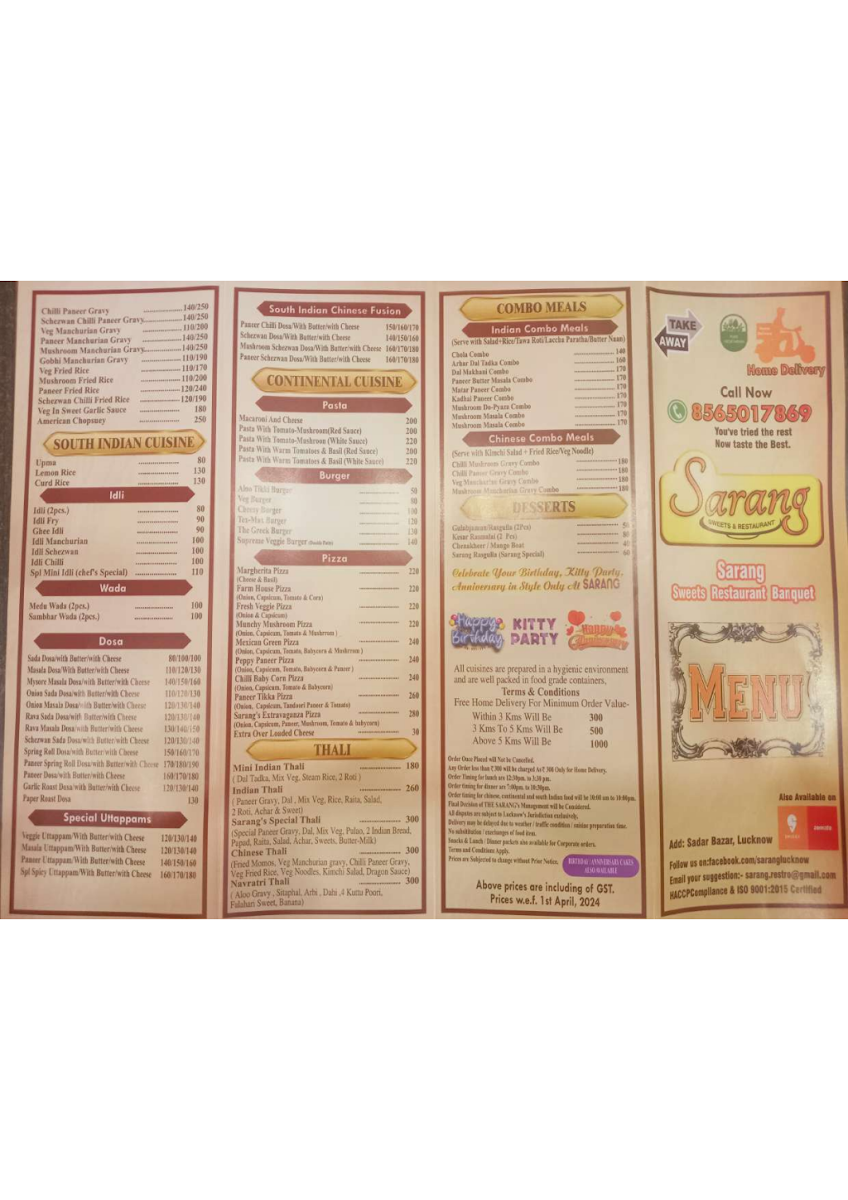 Chilli Paneer Gravy 140/250
Schezwan Chilli Paneer Gravy 140/250
Veg Manchurian Gravy 110/200
Paneer Manchurian Gravy 140/250
Mushroom Manchurian Gravy 140/250
Gobhi Manchurian Gravy 110/190
Veg Fried Rice 110/170
Mushroom Fried Rice 110/200
Paneer Fried Rice 120/240
Schezwan Chilli Fried Rice 120/190
Veg In Sweet Garlic Sauce 180
American Chopsuey 250
SOUTH INDIAN CUISINE
Upma 80
Lemon Rice 130
Curd Rice 130
Idli
Idli (2pcs.) 80
Idli Fry 90
Ghee Idli 90
Idli Manchurian 100
Idli Schezwan 100
Idli Chilli 100
Spl Mini Idli (chef's Special) 110
Wada
Medu Wada (2pcs.) 100
Sambhar Wada (2pcs.) 100
Dosa
Sada Dosa/with Butter/with Cheese 80/100/100
Masala Dosa/With Butter/with Cheese 110/120/130
Mysore Masala Dosa/with Butter/with Cheese 140/150/160
Onion Sada Dosa/with Butter/with Cheese 110/120/130
Onion Masala Dosa/with Butter/with Cheese 120/130/140
Rava Sada Dosa/with Butter/with Cheese 120/130/140
Rava Masala Dosa/with Butter/with Cheese 130/140/150
Schezwan Sada Dosa/with Butter/with Cheese 120/130/140
Spring Roll Dosa/with Butter/with Cheese 150/160/170
Paneer Spring Roll Dosa/with Butter/with Cheese 170/180/190
Paneer Dosa/with Butter/with Cheese 160/170/180
Garlic Roast Dosa/with Butter/with Cheese 120/130/140
Paper Roast Dosa 130
Special Uttappams
Veggie Uttappam/With Butter/with Cheese 120/130/140
Masala Uttappam/With Butter/with Cheese 120/130/140
Paneer Uttappam/With Butter/with Cheese 140/150/160
Spl Spicy Uttappam/With Butter/with Cheese 160/170/180
South Indian Chinese Fusion
Paneer Chilli Dosa/With Butter/with Cheese 150/160/170
Schezwan Dosa/With Butter/with Cheese 140/150/160
Mushroom Schezwan Dosa/With Butter/with Cheese 160/170/180
Paneer Schezwan Dosa/With Butter/with Cheese 160/170/180
CONTINENTAL CUISINE
Pasta
Macaroni And Cheese 200
Pasta With Tomato-Mushroom(Red Sauce) 200
Pasta With Tomato-Mushroom (White Sauce) 220
Pasta With Warm Tomatoes & Basil (Red Sauce) 200
Pasta With Warm Tomatoes & Basil (White Sauce) 220
Burger
Aloo Tikki Burger 50
Veg Burger 90
Cheese Burger 100
Tex-Max Burger 120
The Greek Burger 130
Supreme Veggie Burger 140
Pizza
Margherita Pizza 220
(Cheese & Basil)
Farm House Pizza 220
(Onion, Capsicum, Tomato & Corn)
Fresh Veggie Pizza 220
(Onion & Capsicum)
Munchy Mushroom Pizza 220
(Onion, Capsicum, Tomato & Mushroom )
Mexican Green Pizza 240
(Onion, Capsicum, Tomato, Babycorn & Mushroom )
Peppy Paneer Pizza 240
(Onion, Capsicum, Tomato, Babycorn & Paneer )
Chilli Baby Corn Pizza 240
(Onion, Capsicum, Tomato & Babycorn)
Paneer Tikka Pizza 260
(Onion, Capsicum, Tandoori Paneer & Tomato)
Sarang's Extravaganza Pizza 280
(Onion, Capsicum, Paneer, Mushroom, Tomato & babycorn)
Extra Over Loaded Cheese 30
THALI
Mini Indian Thali 180
( Dal Tadka, Mix Veg, Steam Rice, 2 Roti )
Indian Thali 260
( Paneer Gravy, Dal , Mix Veg, Rice, Raita, Salad,
2 Roti, Achar & Sweet)
Sarang's Special Thali 300
(Special Paneer Gravy, Dal, Mix Veg, Pulao, 2 Indian Bread,
Papad, Raita, Salad, Achar, Sweets, Butter-Milk)
Chinese Thali 300
(Fried Momos, Veg Manchurian gravy, Chilli Paneer Gravy,
Veg Fried Rice, Veg Noodles, Kimchi Salad, Dragon Sauce)
Navratri Thali 300
( Aloo Gravy , Sitaphal, Arbi , Dahi ,4 Kuttu Poori,
Falahari Sweet, Banana)
COMBO MEALS
Indian Combo Meals
(Serve with Salad+Rice/Tawa Roti/Laccha Paratha/Butter Naan)
Chola Combo 140
Achar Dal Tadka Combo 160
Dal Makhani Combo 170
Paneer Butter Masala Combo 170
Matar Paneer Combo 170
Kadhai Paneer Combo 170
Mushroom Do-Pyaza Combo 170
Mushroom Masala Combo 170
Mushroom Masala Combo 170
Chinese Combo Meals
(Serve with Kimchi Salad + Fried Rice/Veg Noodle)
Chilli Mushroom Gravy Combo 180
Chilli Paneer Gravy Combo 180
Veg Manchurian Gravy Combo 180
Mushroom Manchurian Gravy Combo 180
DESSERTS
Gulabjamun/Rasgulla (2Pcs) 50
Kesar Rasmalai (2 Pcs) 80
Chenakheer / Mango Boat 40
Sarang Rasgulla (Sarang Special) 60
Celebrate Your Birthday, Kitty Party,
Anniversary in Style Only At SARANG
Happy Birthday
KITTY PARTY
Happy Anniversary
All cuisines are prepared in a hygienic environment
and are well packed in food grade containers,
Terms & Conditions
Free Home Delivery For Minimum Order Value-
Within 3 Kms Will Be 300
3 Kms To 5 Kms Will Be 500
Above 5 Kms Will Be 1000
Order Once Placed will Not be Cancelled.
Any Order less than ₹.300 will be charged As ₹.300 Only for Home Delivery.
Order Timing for lunch are 12:30pm. to 3:30 pm.
Order timing for dinner are 7:00pm. to 10:30pm.
Order timing for chinese, continental and south Indian food will be 10:00 am to 10:00pm.
Final Decision of THE SARANG's Management will be Considered.
All disputes are subject to Lucknow's Jurisdiction exclusively.
Delivery may be delayed due to weather / traffic condition / cuisine preparation time.
No substitution / exchanges of food item.
Snacks & Lunch / Dinner packets also available for Corporate orders.
Terms and Conditions Apply.
Prices are Subjected to change without Prior Notice.
BIRTHDAY / ANNIVERSARY CAKES
ALSO AVAILABLE
Above prices are including of GST.
Prices w.e.f. 1st April, 2024
TAKE
AWAY
Home Delivery
Call Now
8565017869
You've tried the rest
Now taste the Best.
Sarang
SWEETS & RESTAURANT
Sarang
Sweets Restaurant Banquet
MENU
Also Available on
SWIGGY
zomato
Add: Sadar Bazar, Lucknow
Follow us on:facebook.com/saranglucknow
Email your suggestion:- sarang.restro@gmail.com
HACCPCompliance & ISO 9001:2015 Certified